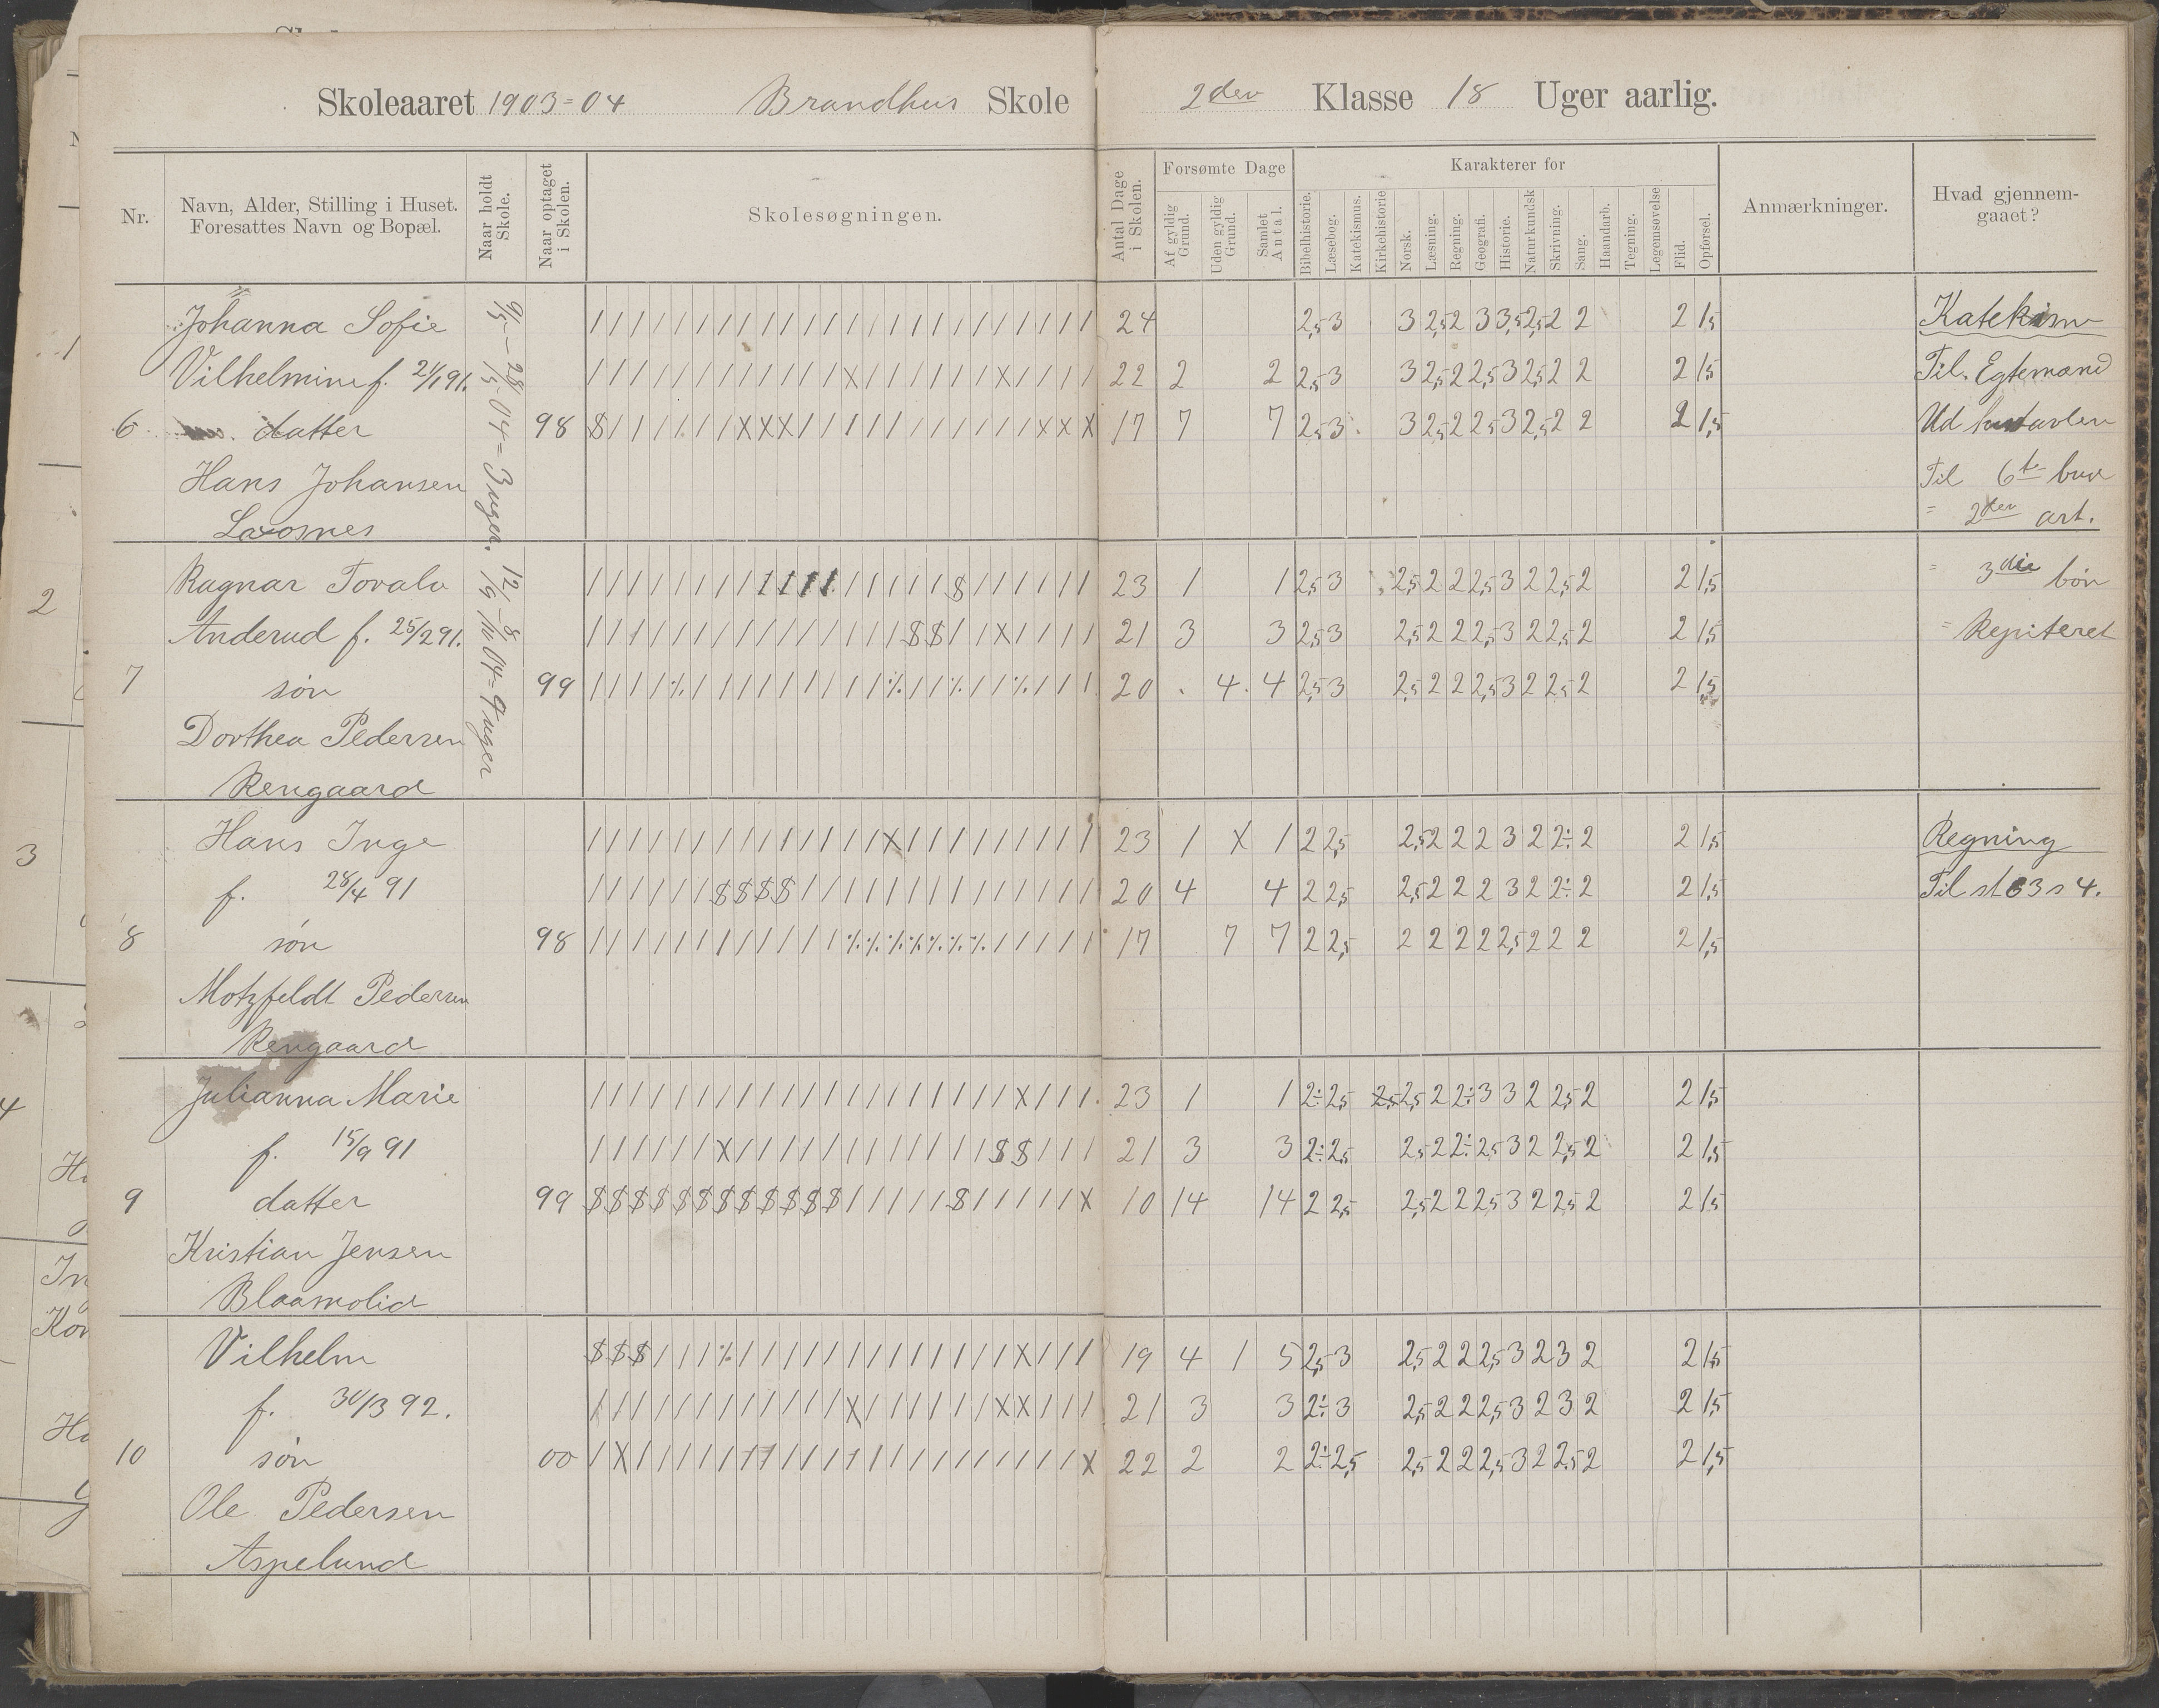 Skoleaaret 1903-04 Brandhus Skole 2den Klasse 18 Uger aarlig.
Nr.
Navn, Alder, Stilling i Huset.
Foresattes Navn og Bopæl.
Naar holdt Skole.
Naar optaget i Skolen.
Skolesøgningen.
Antal Dage i Skolen.
Forsømte Dage
Af gyldig Grund.
Uden gyldig Grund.
Samlet Antal.
Karakterer for
Bibelhistorie.
Læsebog.
Katekismus.
Kirkehistorie
Norsk.
Læsning.
Regning.
Geografi.
Historie.
Naturkundsk
Skrivning.
Sang.
Haandarb.
Tegning.
Legemsøvelse
Flid.
Opførsel.
Anmærkninger.
Hvad gjennemgaaet?
Johanna Sofie 24 2,5 3 3 2,5 2 3 3,5 2,5 2 2 2 1,5
Vilhelmine f. 21/1 91. 22 2 2 2,5 3 3 2,5 2 2,5 3 2,5 2 2 2 1,5
6 datter 98 17 7 7 2,5 3 3 2,5 2 2,5 3 2,5 2 2 2 1,5
Hans Johansen
Laxosnes
04 = 3 uger.
Ragnar Tovalv 23 1 1 2,5 3 2,5 2 2 2,5 3 2 2,5 2 2 1,5
Anderud f. 25/2 91. 21 3 3 2,5 3 2,5 2 2 2,5 3 2 2,5 2 2 1,5
7 søn 99 20 4 4 2,5 3 2,5 2 2 2,5 3 2 2,5 2 2 1,5
Dorthea Pedersen
Rengaard
04 = 9 uger
Hans Inge 23 1 X 1 2 2,5 2,5 2 2 2 3 2 2÷ 2 2 1,5
f. 28/4 91 20 4 4 2 2,5 2,5 2 2 2 3 2 2÷ 2 2 1,5
8 søn 98 17 7 7 2 2,5 2 2 2 2 2,5 2 2 2 2 1,5
Motzfeldt Pedersen
Rengaard
Julianna Marie 23 1 1 2÷ 2,5 2,5 2,5 2 2÷ 3 3 2 2,5 2 2 1,5
f. 15/9 91 21 3 3 2÷ 2,5 2,5 2 2÷ 2,5 3 2 2,5 2 2 1,5
9 datter 99 10 14 14 2 2,5 2,5 2 2 2,5 3 2 2,5 2 2 1,5
Kristian Jensen
Blaamolid
Vilhelm 19 4 1 5 2,5 3 2,5 2 2 2,5 3 2 3 2 2 1,5
f. 30/3 92. 21 3 3 2÷ 3 2,5 2 2 2,5 3 2 3 2 2 1,5
10 søn 00 22 2 2 2÷ 2,5 2,5 2 2 2,5 3 2 2,5 2 2 1,5
Ole Pedersen
Aspelund
Katekism
Til. Egtemænd
Ud hustavlen
Til 6te bud
" 2den art.
" 3die bøn
" Repiteret
Regning
Til st 63 s 4.
1
2
3
4